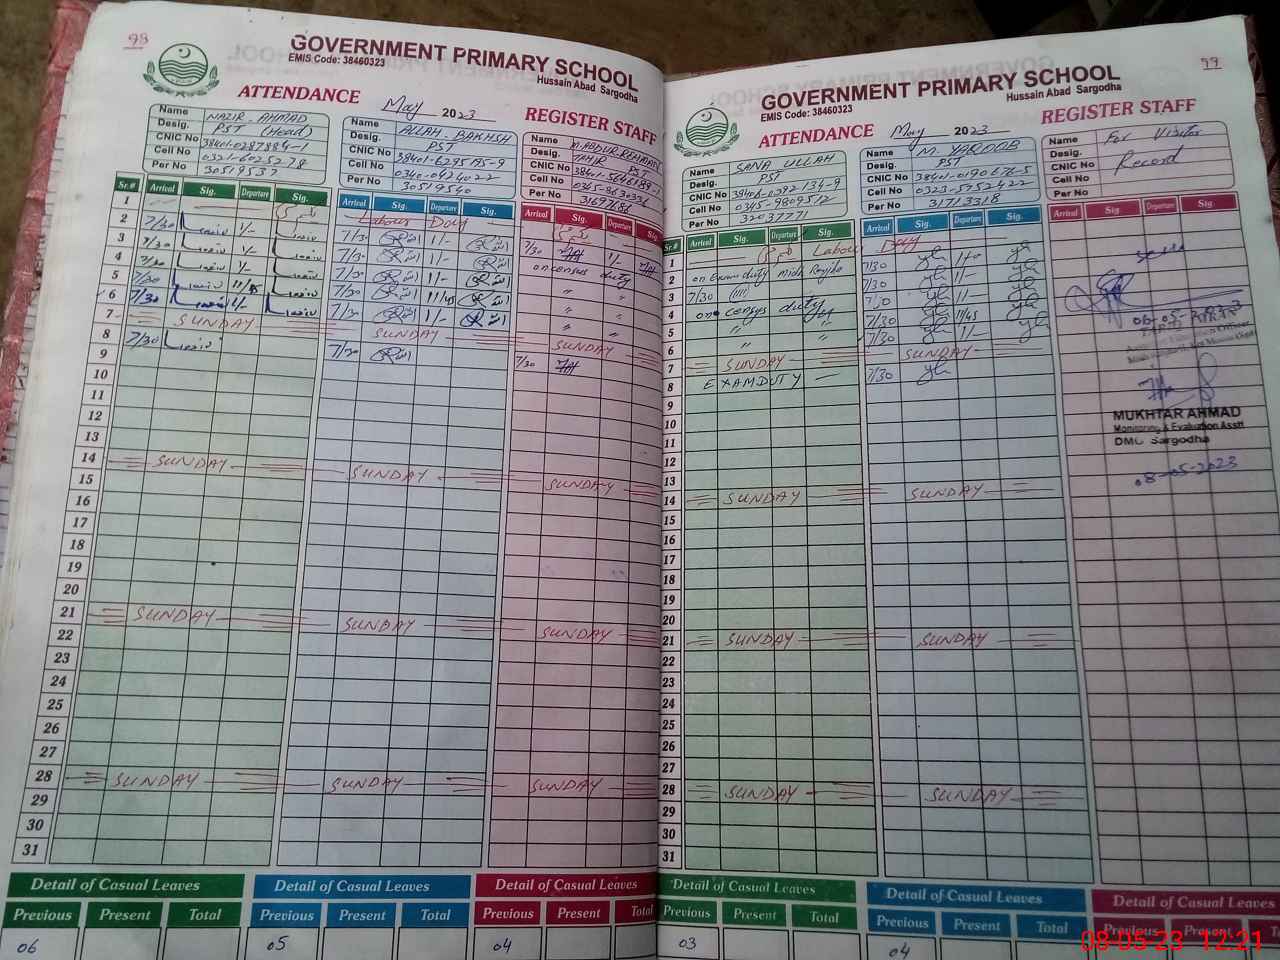 98
GOVERNMENT PRIMARY SCHOOL
EMIS Code: 38460323
Hussain Abad Sargodha
ATTENDANCE May 2023 REGISTER STAFF
Name NAZIR AHMAD
Desig. PST (Head)
CNIC No
Cell No 0321-6025278
Per No 30519537
Name ALLAH BAKHSH
Desig. PST
CNIC No 38401-6295195-9
Cell No 0340-0424022
Per No 30519540
Name M. ABDUR REHMAN
Desig. TAHIR PST
CNIC No
Cell No
Per No
Sr.# Arrival Sig. Departure Sig. Arrival Sig. Departure Sig. Arrival Sig. Departure Sig.
1 Labour Day
2 7/30 1/- 7/30 1/- 7/30 1/-
3 7/30 1/- 7/30 1/- on census duty
4 7/30 1/- 7/30 1/- " "
5 7/30 11/45 7/30 11/45 " "
6 7/30 1/- 7/30 1/- " "
7 SUNDAY SUNDAY SUNDAY
8 7/30 7/30 7/30
9
10
11
12
13
14 SUNDAY SUNDAY SUNDAY
15
16
17
18
19
20
21 SUNDAY SUNDAY SUNDAY
22
23
24
25
26
27
28 SUNDAY SUNDAY SUNDAY
29
30
31
Detail of Casual Leaves Detail of Casual Leaves Detail of Casual Leaves
Previous Present Total Previous Present Total Previous Present Total
06 05 04
99
GOVERNMENT PRIMARY SCHOOL
EMIS Code: 38460323
Hussain Abad Sargodha
ATTENDANCE May 2023 REGISTER STAFF
Name SANA ULLAH
Desig. PST
CNIC No
Cell No 0345-9809512
Per No 32037771
Name M. YAQOOB
Desig. PST
CNIC No 38401-0190676-5
Cell No 0323-5752422
Per No 31713318
Name For Visitor
Desig. Record
CNIC No
Cell No
Per No
Sr.# Arrival Sig. Departure Sig. Arrival Sig. Departure Sig. Arrival Sig. Departure Sig.
1 Labour Day
2 on Exam duty 7/30
3 7/30 7/30 1/-
4 on census duty 7/30 1/-
5 " " 7/30 11/45
6 " " 7/30 1/-
7 SUNDAY SUNDAY
8 EXAM DUTY 7/30
9
10
11
12
13
14 SUNDAY SUNDAY
15
16
17
18
19
20
21 SUNDAY SUNDAY
22
23
24
25
26
27
28 SUNDAY SUNDAY
29
30
31
MUKHTAR AHMAD
Monitoring & Evaluation Asstt
DMO Sargodha
08-05-2023
Detail of Casual Leaves Detail of Casual Leaves Detail of Casual Leaves
Previous Present Total Previous Present Total Previous Present
03 04
08-05-23 12:21